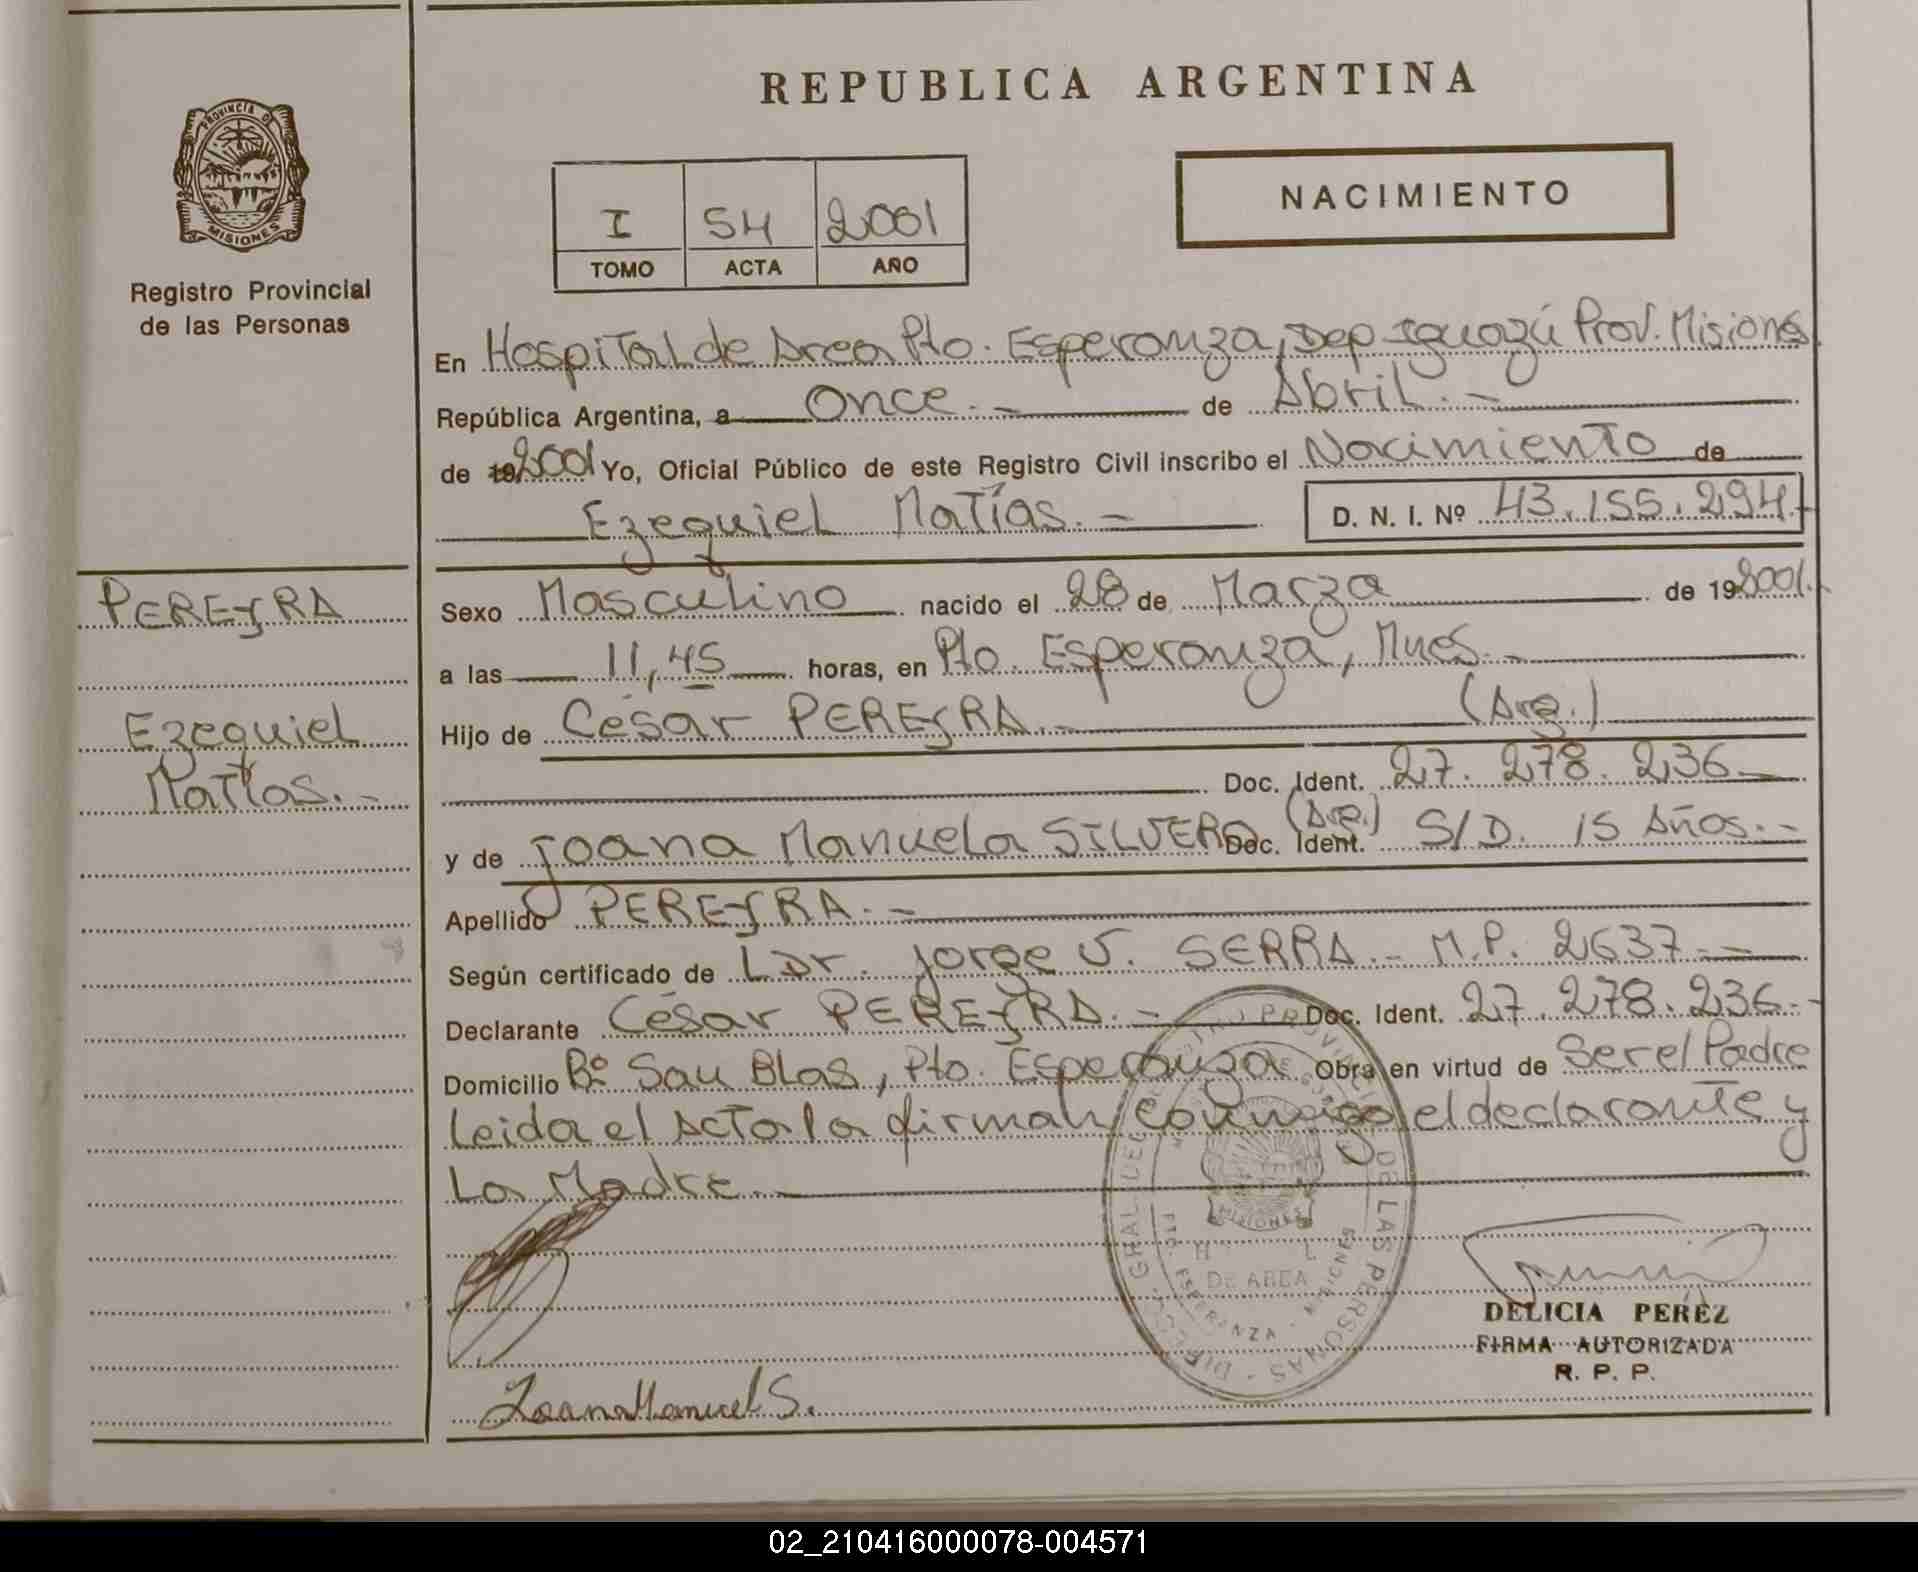 REPUBLICA ARGENTINA
PROVINCIA DE
MISIONES
Registro Provincial
de las Personas
I 54 2001
TOMO ACTA AÑO
NACIMIENTO
En Hospital de Area Pto. Esperanza, Dep Iguazú Prov. Misiones
República Argentina, a Once.- de Abril.-
de 192001 Yo, Oficial Público de este Registro Civil inscribo el Nacimiento de
Ezequiel Matías.- D. N. I. Nº 43.155.294.-
PEREYRA
Ezequiel
Matías.-
Sexo Masculino nacido el 28 de Marzo de 192001.-
a las 11,45 horas, en Pto. Esperanza, Mnes.-
Hijo de César PEREYRA.- (Arg.)
Doc. Ident. 27.278.236
y de Joana Manuela SILVERO (Arg.) Doc. Ident. S/D. 15 Años.-
Apellido PEREYRA.-
Según certificado de L Dr. Jorge V. SERRA.- M.P. 2637.-
Declarante César PEREYRA.- Doc. Ident. 27.278.236.-
Domicilio Bº San Blas, Pto. Esperanza Obra en virtud de Ser el Padre
Leida el Acta la firman conmigo el declarante y
La Madre.-
MISIONES
DE AREA
DE LAS PERSONAS
DELICIA PEREZ
FIRMA AUTORIZADA
R. P. P.
Joana Manuel S.
02_210416000078-004571